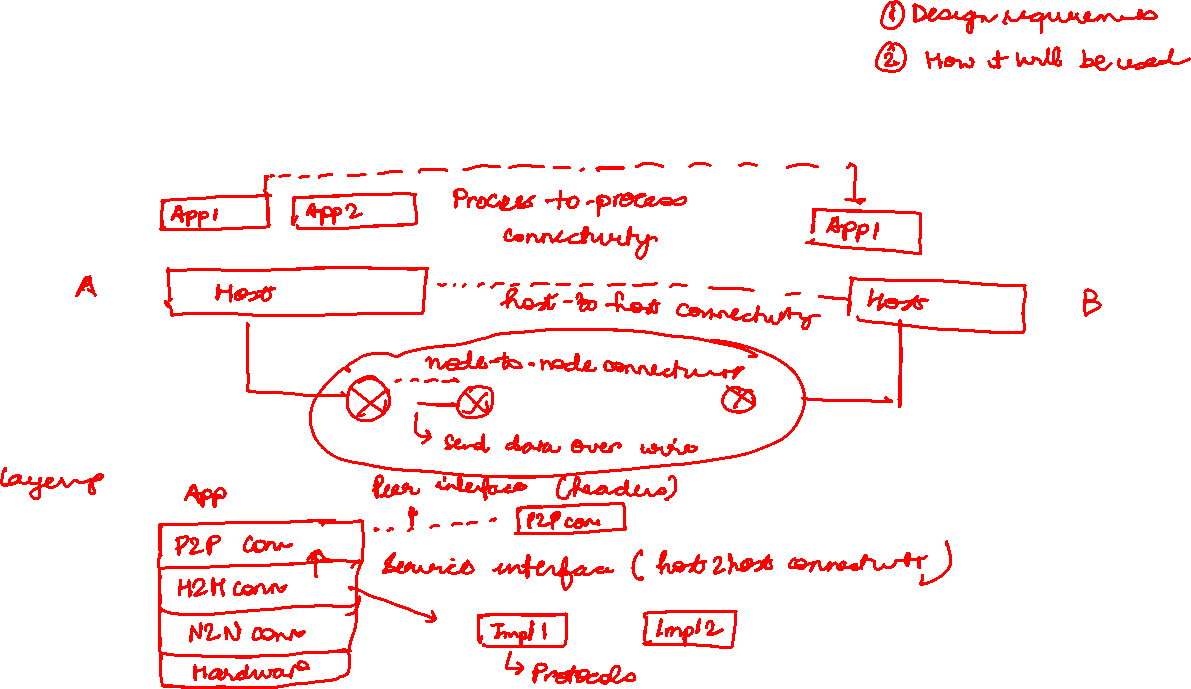 ① Design requirements
② How it will be used
App1
App2
Process-to-process
connectivity
App1
A
Host
host-to-host connectivity
Host
B
node-to-node connectivity
Send data over wire
Layering
App
Peer interface (headers)
P2P conn
P2P conn
Service interface (host2host connectivity)
H2H conn
N2N conn
Impl1
Impl2
Hardware
Protocols